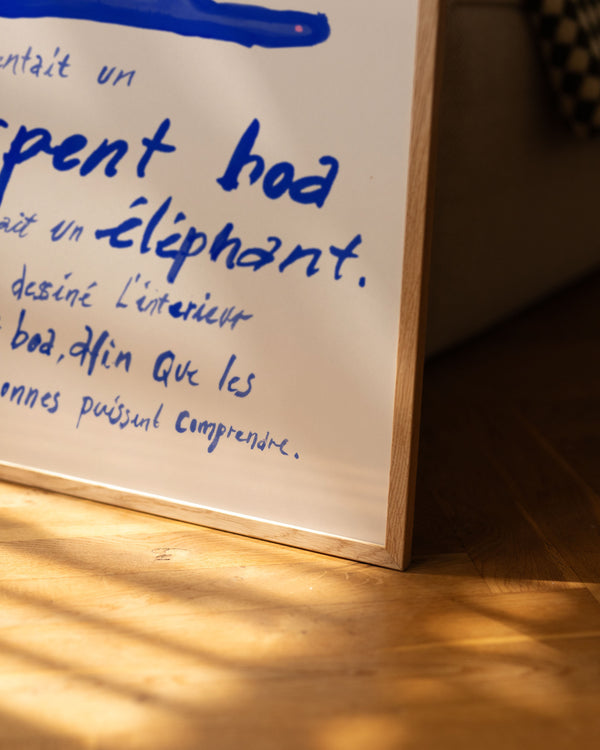 entait un
spent boa
ait un éléphant.
dessiné L'intérieur
boa, Afin Que les
onnes puissent comprendre.